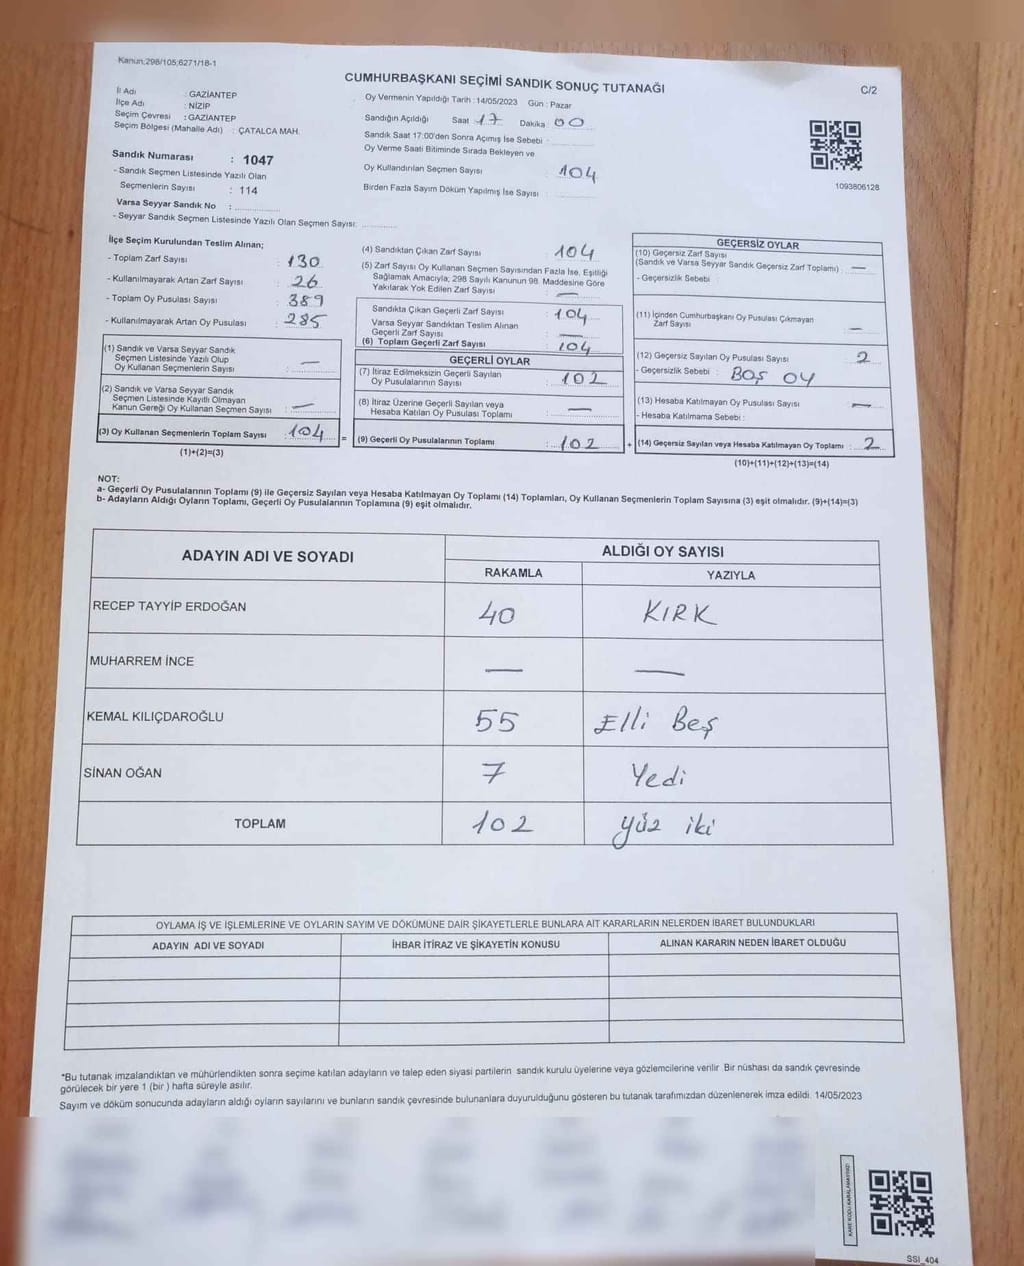 Kanun;298/105;6271/18-1
CUMHURBAŞKANI SEÇİMİ SANDIK SONUÇ TUTANAĞI
C/2
İl Adı : GAZİANTEP
İlçe Adı : NİZİP
Seçim Çevresi : GAZİANTEP
Seçim Bölgesi (Mahalle Adı) : ÇATALCA MAH.
Sandık Numarası : 1047
- Sandık Seçmen Listesinde Yazılı Olan
Seçmenlerin Sayısı : 114
Varsa Seyyar Sandık No :
- Seyyar Sandık Seçmen Listesinde Yazılı Olan Seçmen Sayısı:
Oy Vermenin Yapıldığı Tarih : 14/05/2023 Gün : Pazar
Sandığın Açıldığı Saat 17 Dakika 00
Sandık Saat 17:00'den Sonra Açımış İse Sebebi :
Oy Verme Saati Bitiminde Sırada Bekleyen ve
Oy Kullandırılan Seçmen Sayısı : 104
Birden Fazla Sayım Döküm Yapılmış İse Sayısı :
1093806128
İlçe Seçim Kurulundan Teslim Alınan;
- Toplam Zarf Sayısı : 130
- Kullanılmayarak Artan Zarf Sayısı : 26
- Toplam Oy Pusulası Sayısı : 389
- Kullanılmayarak Artan Oy Pusulası : 285
(1) Sandık ve Varsa Seyyar Sandık
Seçmen Listesinde Yazılı Olup
Oy Kullanan Seçmenlerin Sayısı : —
(2) Sandık ve Varsa Seyyar Sandık
Seçmen Listesinde Kayıtlı Olmayan
Kanun Gereği Oy Kullanan Seçmen Sayısı : —
(3) Oy Kullanan Seçmenlerin Toplam Sayısı : 104
(1)+(2)=(3)
(4) Sandıktan Çıkan Zarf Sayısı : 104
(5) Zarf Sayısı Oy Kullanan Seçmen Sayısından Fazla İse, Eşitliği
Sağlamak Amacıyla; 298 Sayılı Kanunun 98. Maddesine Göre
Yakılarak Yok Edilen Zarf Sayısı : —
Sandıkta Çıkan Geçerli Zarf Sayısı : 104
Varsa Seyyar Sandıktan Teslim Alınan
Geçerli Zarf Sayısı : —
(6) Toplam Geçerli Zarf Sayısı : 104
GEÇERLİ OYLAR
(7) İtiraz Edilmeksizin Geçerli Sayılan
Oy Pusulalarının Sayısı : 102
(8) İtiraz Üzerine Geçerli Sayılan veya
Hesaba Katılan Oy Pusulası Toplamı : —
= (9) Geçerli Oy Pusulalarının Toplamı : 102 +
GEÇERSİZ OYLAR
(10) Geçersiz Zarf Sayısı
(Sandık ve Varsa Seyyar Sandık Geçersiz Zarf Toplamı) : —
- Geçersizlik Sebebi :
(11) İçinden Cumhurbaşkanı Oy Pusulası Çıkmayan
Zarf Sayısı : —
(12) Geçersiz Sayılan Oy Pusulası Sayısı : 2
- Geçersizlik Sebebi : BOŞ OY
(13) Hesaba Katılmayan Oy Pusulası Sayısı : —
- Hesaba Katılmama Sebebi :
(14) Geçersiz Sayılan veya Hesaba Katılmayan Oy Toplamı : 2
(10)+(11)+(12)+(13)=(14)
NOT:
a- Geçerli Oy Pusulalarının Toplamı (9) ile Geçersiz Sayılan veya Hesaba Katılmayan Oy Toplamı (14) Toplamları, Oy Kullanan Seçmenlerin Toplam Sayısına (3) eşit olmalıdır. (9)+(14)=(3)
b- Adayların Aldığı Oyların Toplamı, Geçerli Oy Pusulalarının Toplamına (9) eşit olmalıdır.
ADAYIN ADI VE SOYADI ALDIĞI OY SAYISI
RAKAMLA YAZIYLA
RECEP TAYYİP ERDOĞAN 40 KIRK
MUHARREM İNCE — —
KEMAL KILIÇDAROĞLU 55 Elli Beş
SİNAN OĞAN 7 Yedi
TOPLAM 102 yüz iki
OYLAMA İŞ VE İŞLEMLERİNE VE OYLARIN SAYIM VE DÖKÜMÜNE DAİR ŞİKAYETLERLE BUNLARA AİT KARARLARIN NELERDEN İBARET BULUNDUKLARI
ADAYIN ADI VE SOYADI İHBAR İTİRAZ VE ŞİKAYETİN KONUSU ALINAN KARARIN NEDEN İBARET OLDUĞU
*Bu tutanak imzalandıktan ve mühürlendikten sonra seçime katılan adayların ve talep eden siyasi partilerin sandık kurulu üyelerine veya gözlemcilerine verilir Bir nüshası da sandık çevresinde
görülecek bir yere 1 (bir ) hafta süreyle asılır.
Sayım ve döküm sonucunda adayların aldığı oyların sayılarını ve bunların sandık çevresinde bulunanlara duyurulduğunu gösteren bu tutanak tarafımızdan düzenlenerek imza edildi. 14/05/2023
KARE KODU KARALAMAYINIZ!
SSI_404